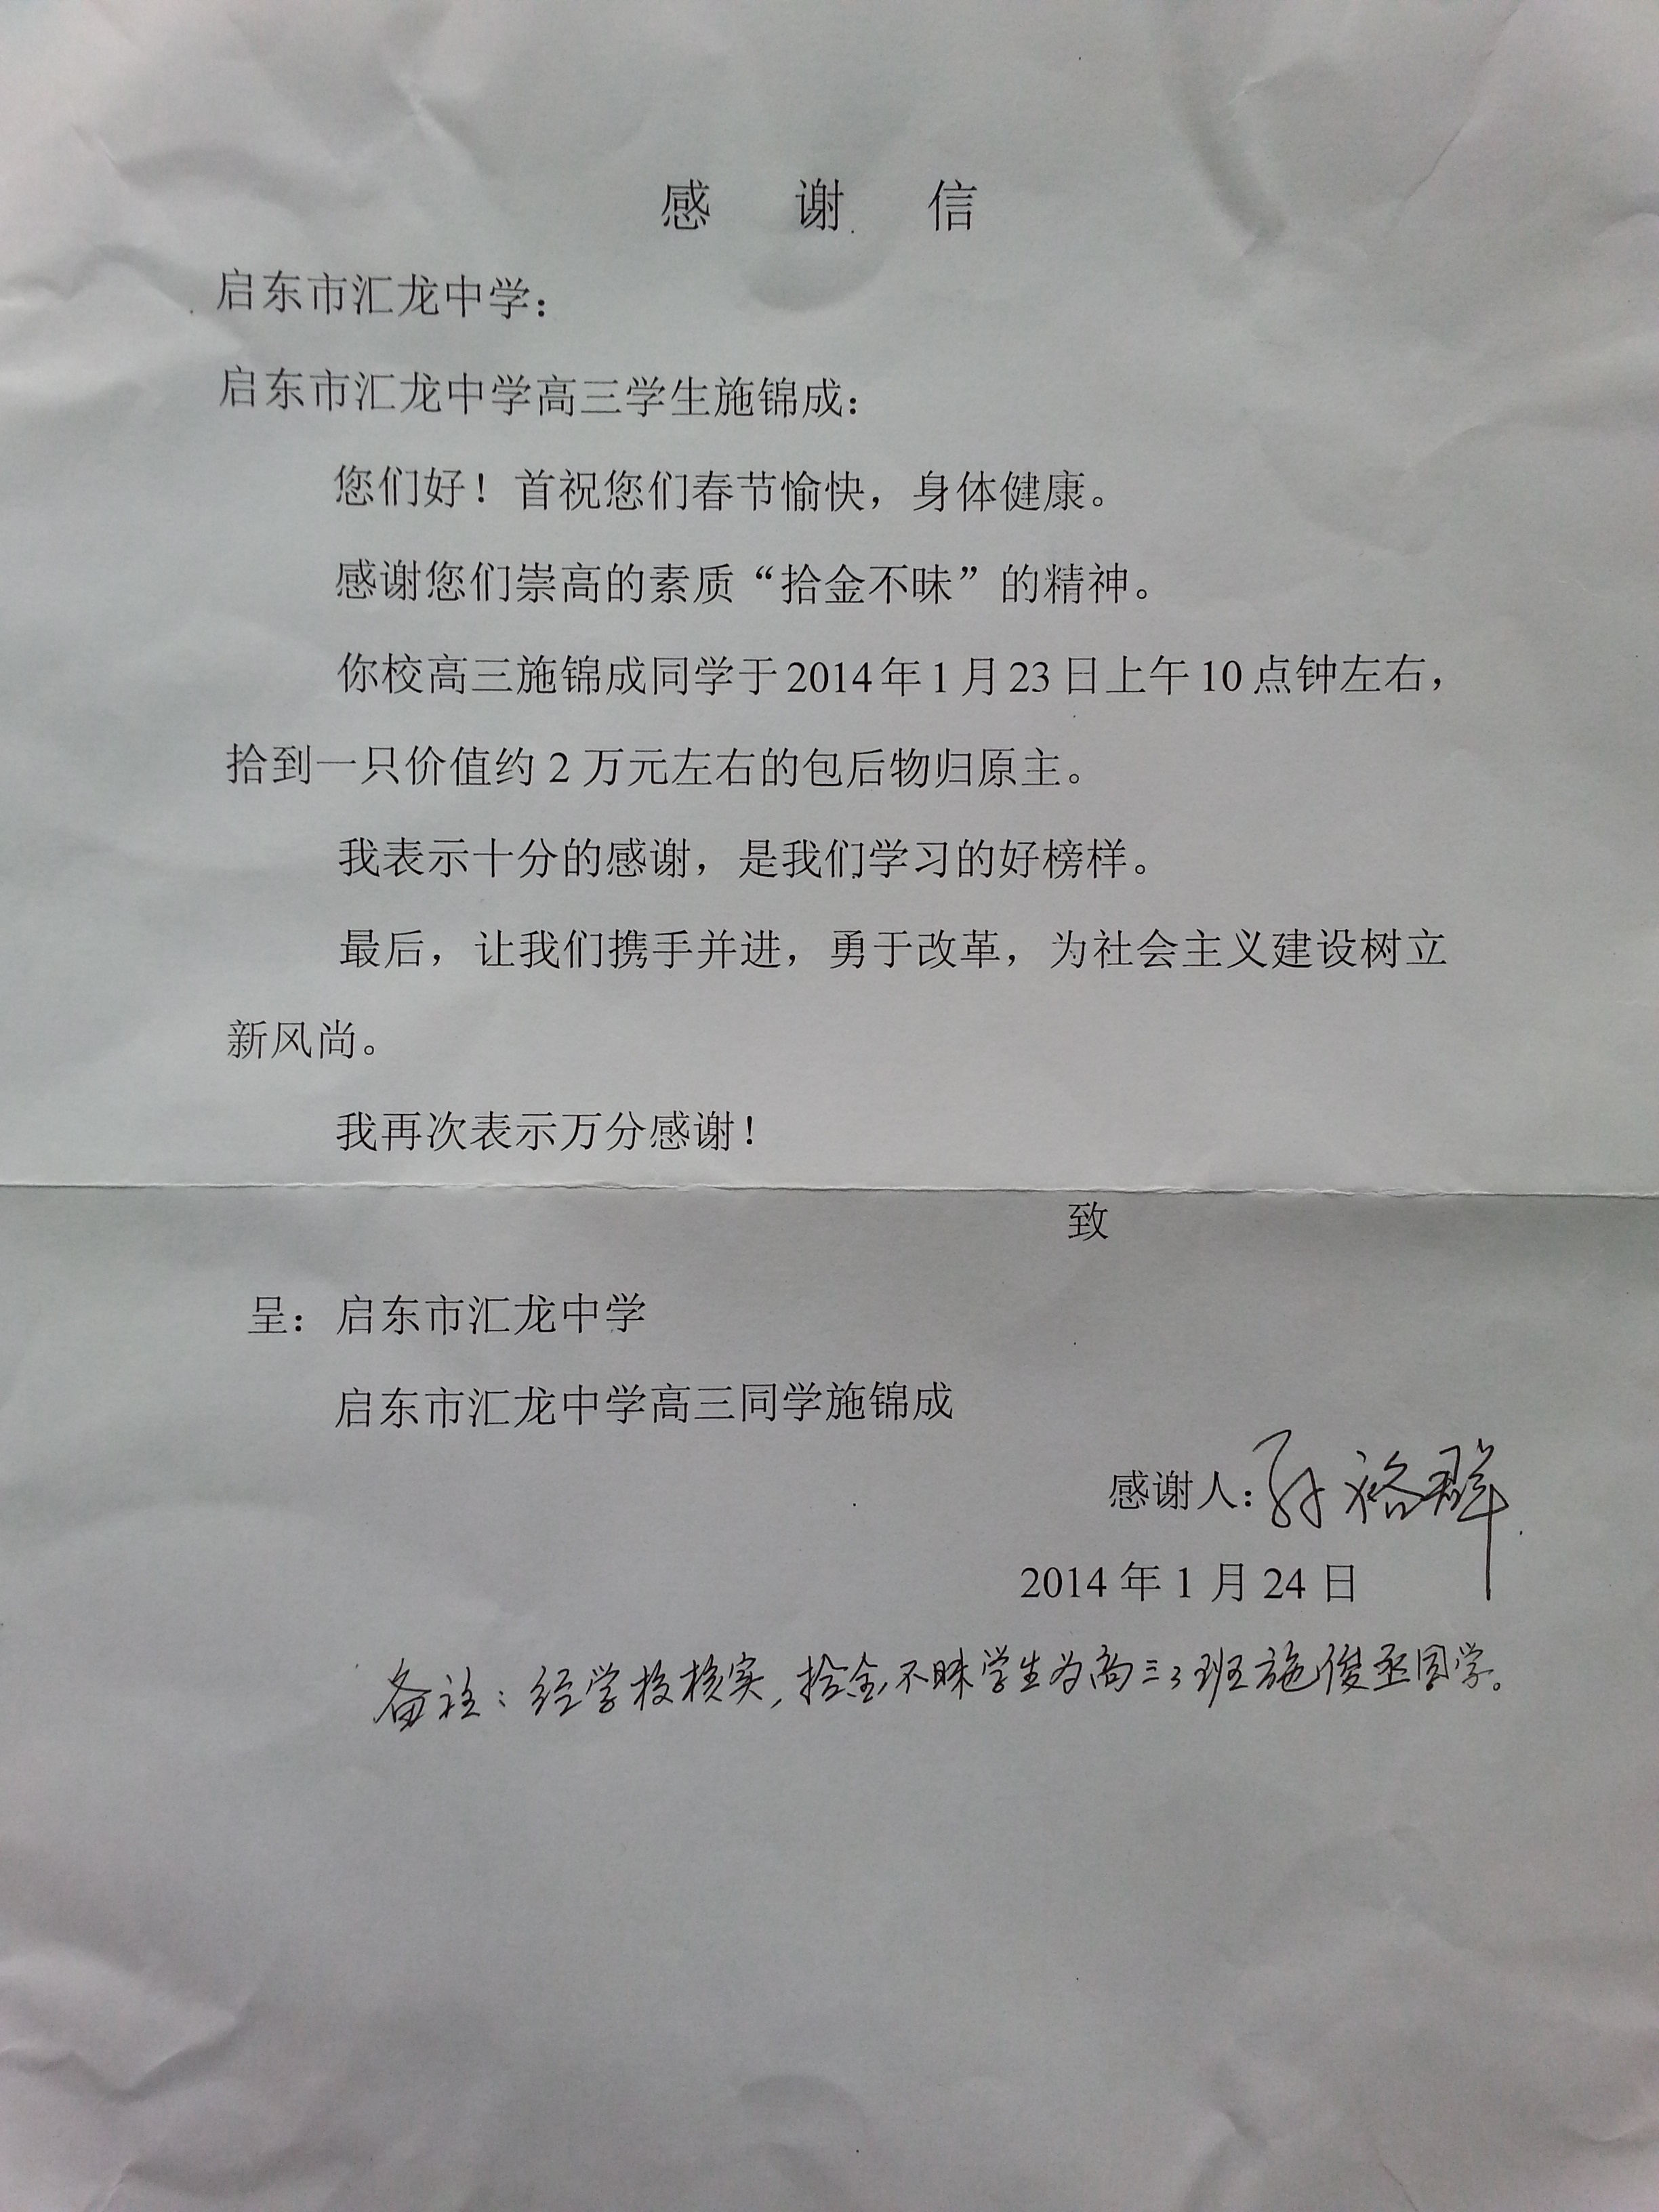 感 谢 信
启东市汇龙中学：
启东市汇龙中学高三学生施锦成：
您们好！首祝您们春节愉快，身体健康。
感谢您们崇高的素质“拾金不昧”的精神。
你校高三施锦成同学于2014年1月23日上午10点钟左右，
拾到一只价值约2万元左右的包后物归原主。
我表示十分的感谢，是我们学习的好榜样。
最后，让我们携手并进，勇于改革，为社会主义建设树立
新风尚。
我再次表示万分感谢！
致
呈：启东市汇龙中学
启东市汇龙中学高三同学施锦成
感谢人：孙裕群
2014年1月24日
备注：经学校核实，拾金不昧学生为高三3班施俊丞同学。